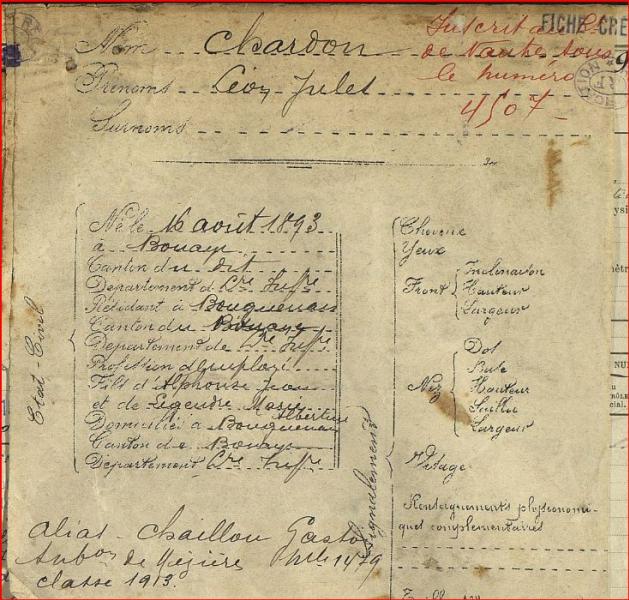 FICHE CRÉ
Inscrit au
de Nantes sous
le numéro
4507
Nom Chardon
Prénoms Léon Jules
Surnoms
Etat-Civil
Né le 16 août 1893
à Bouaye
Canton du dit
Département de Lre Infre
Résidant à Bouguenais
Canton du Bouaye
Département de Lre Infre
Profession d'employé
Fils d'Alphonse Jean
et de Legendre Marie
Albertine
Domicilié à Bouguenais
Canton de Bouaye
Département Lre Infre
Signalement
Cheveux
Yeux
Front
Inclinaison
Hauteur
Largeur
Nez
Dos
Base
Hauteur
Saillie
Largeur
Visage
Renseignements physionomi-
ques complémentaires
alias - Chaillou Gaston
de Mézière Mle 1479
classe 1913.